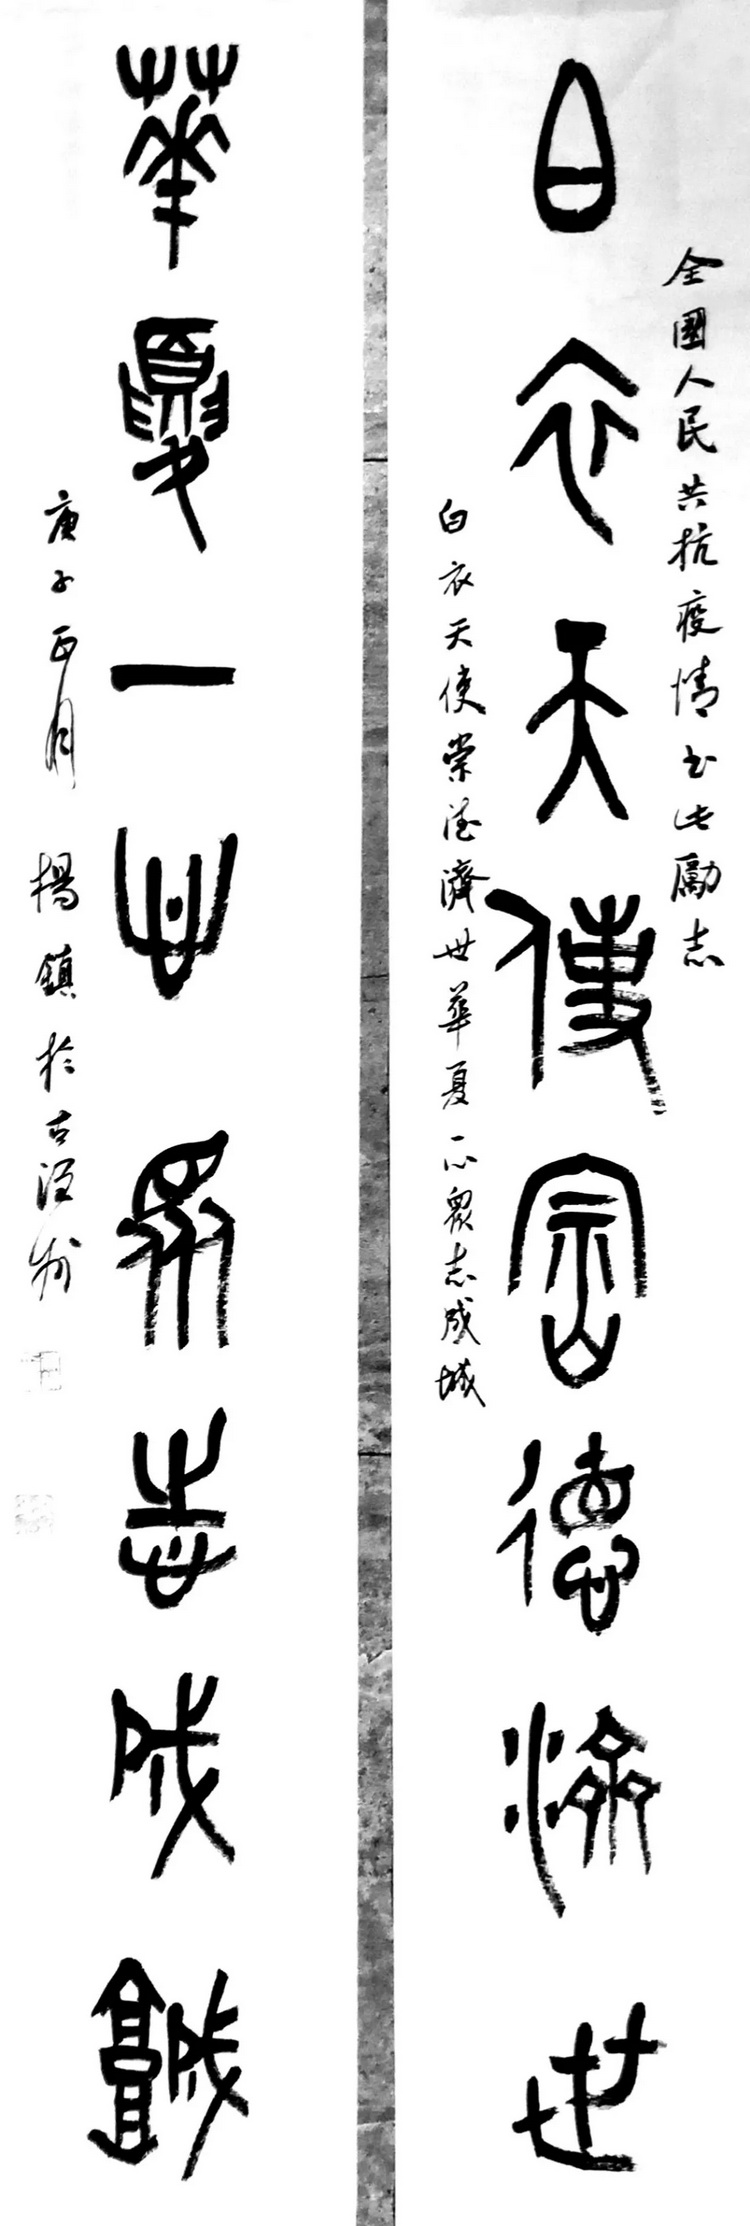 全國人民共抗疫情书此勵志
白衣天使崇德濟世
白衣天使崇德濟世華夏一心眾志成城
華夏一心眾志成城
庚子正月 楊鎮於古涇州